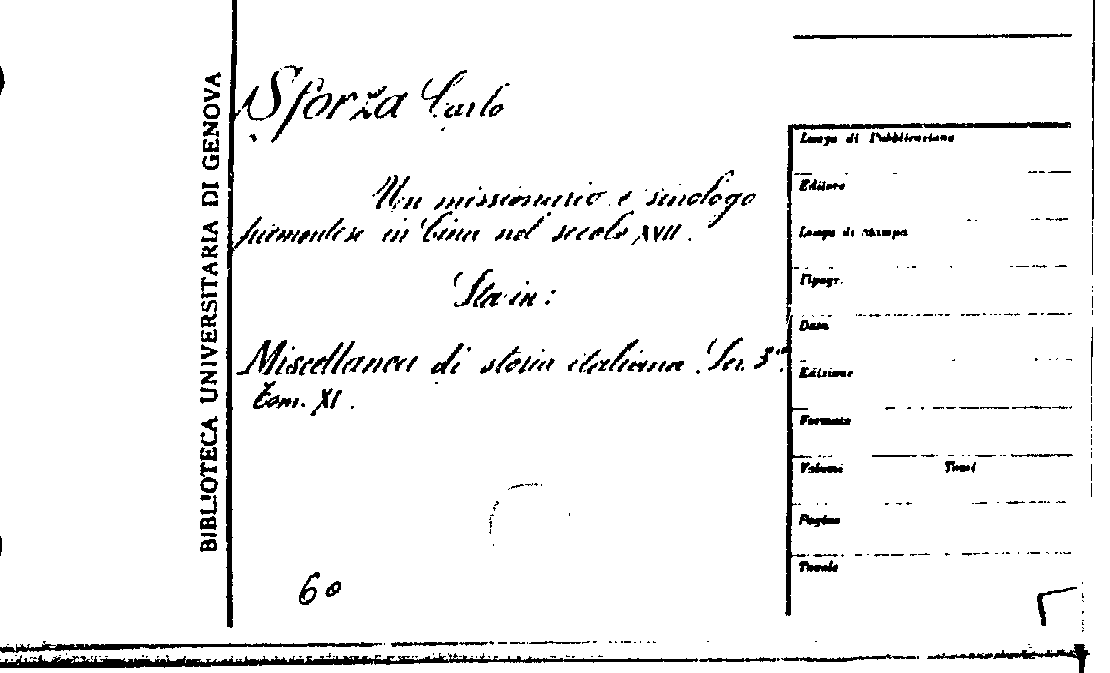 BIBLIOTECA UNIVERSITARIA DI GENOVA
Sforza Carlo
Un missionario e sinologo
piemontese in Cina nel secolo XVII.
Sta in:
Miscellanea di storia italiana. Ser. 3ª.
Tom. XI.
60
Luogo di Pubblicazione
Editore
Luogo di stampa
Tipogr.
Data
Edizione
Formato
Volumi Tomi
Pagine
Tavole